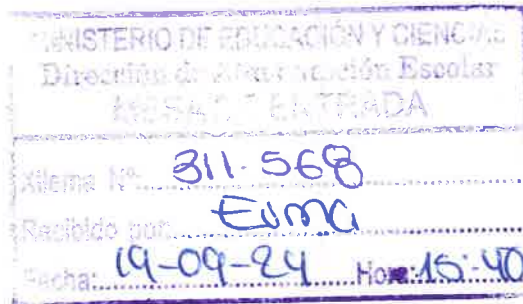 MINISTERIO DE EDUCACIÓN Y CIENCIAS
Dirección de Alimentación Escolar
MESA DE ENTRADA
N° 311-568
Recibido por:
Fecha: 19-09-24 Hora: 15:40